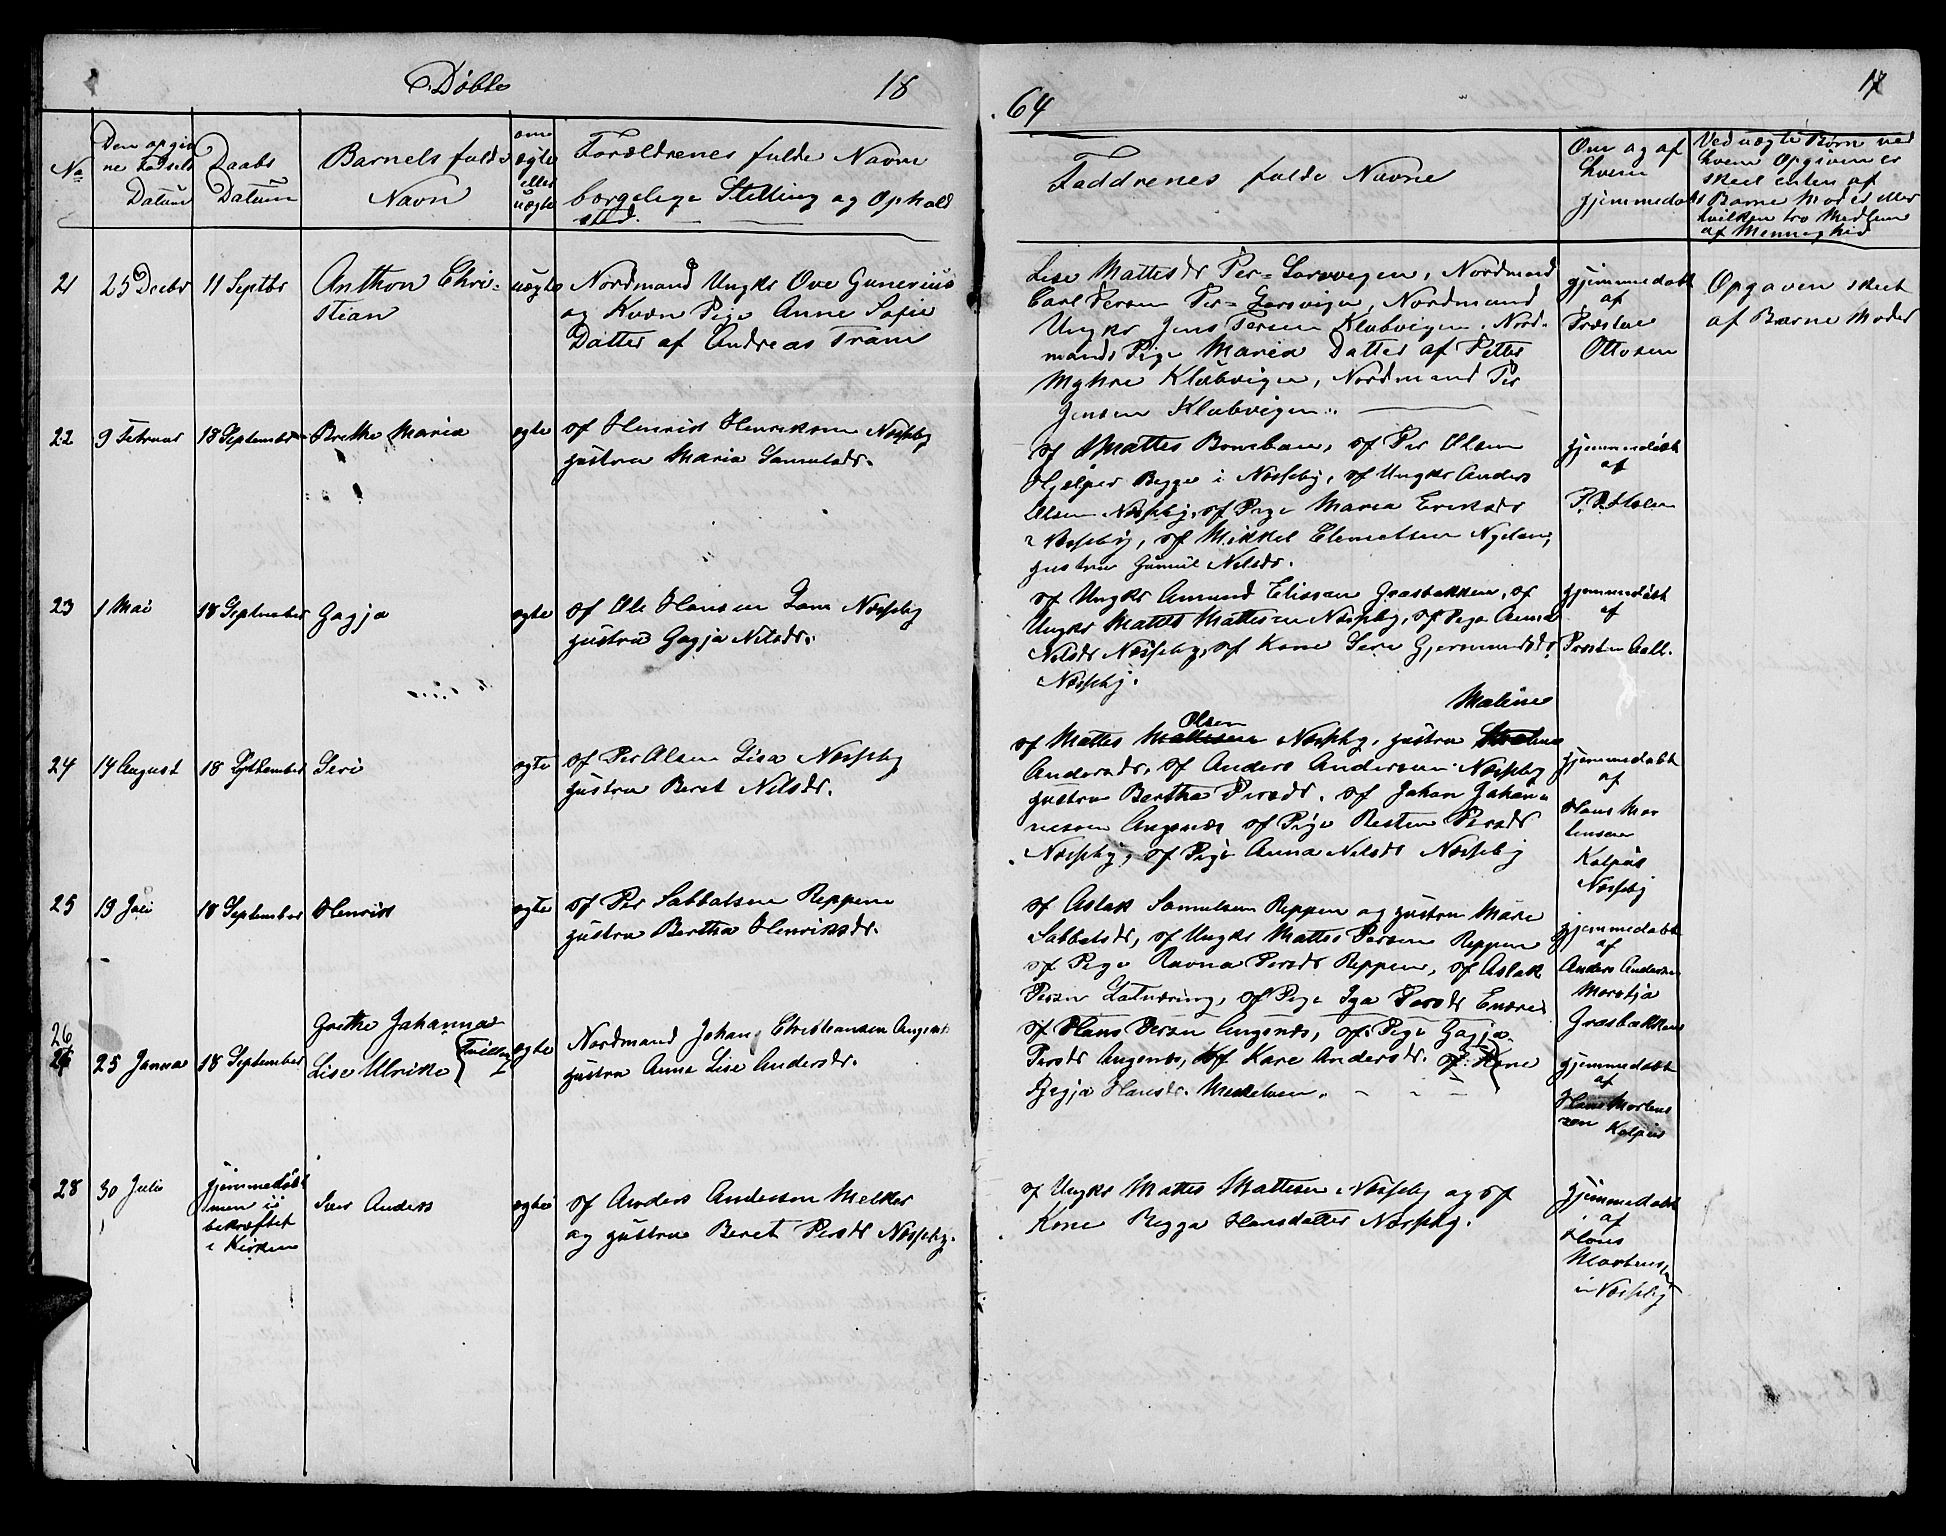 Döbte 18
64 17
No
Den opgiv
ne Födsels
Datum
Daabs
Datum
Barnets fulde
Navn
om
ægte
eller
uægte
Forældrenes fulde Navne
borgelige Stilling og Ophold
sted.
Faddrenes fulde Navne
Om og af
hvem
hjemmedøbt
Ved uægte Börn ved
hvem Opgiven er
skeet enten af
Barne Moder eller
hvilken tro Medlem
af Menneghed
21 25 Decbr 11 Septbr Anthon Chri-
stian
uægte Nordmand Ungkr Ove Gunerius
og Kvæn Pige Anne Sofie
Datter af Andreas Trane
Lise Mattesdr Per-Larsvigen, Nordmand
Carl Persen Per-Larsvigen, Nordmand
Ungkr Jens Persen Klubvigen, Nord-
mands Pige Maria Datter af Petter
Myhre Klubvigen, Nordmand Per
Jensen Klubvigen.
hjemmedøbt
af
Præsten
Ottosen
Opgaven skeet
af Barne Moder
22 9 Februar 18 September Brethe Maria ægte Sf Henrik Henriksen Næsseby
hustru Maria Samuelsdr.
Sf Mattes Bomban, Sf Per Olsen
Hjelper Begge i Næsseby, Sf Ungkr Anders
Olsen Næsseby, Sf Pige Maria Eriksdr
Næsseby, Sf Mikkel Clemetsen Nyelv,
hustru Gunnil Nilsdr.
hjemmedöbt
af
P. P. Holm
23 1 Mai 18 September Gagja ægte Sf Ole Hansen Næsseby
hustru Gagja Nilsdr.
Sf Ungkr Amund Elissen Græsbakken, Sf
Ungkr Mattes Mattesen Næsseby, Sf Pige Anna
Nilsdr Næsseby, Sf Kone Siri Gjermundsdr
Næsseby.
hjemmedöbt
af
Præsten Aall.
24 14 August 18 September Siri ægte Sf Per Olsen Lisa Næsseby
hustru Beret Nilsdr.
Maline
Olsen
Sf Mattes Mattesen Næsseby, hustru
Andersdr, Sf Anders Andersen Næsseby
hustru Bertha Persdr. Sf Johan Johan-
nesen Angsnæs Sf Pige Kesten Persdr
Næsseby, Sf Pige Anna Nilsdr Næsseby
hjemmedøbt
af
Hans Mor
tensen
Kolpus
Næsseby
25 19 Juli 18 September Henrik ægte Sf Per Sabbatsen Reppen
hustru Bertha Henriksdr.
Sf Aslak Samuelsen Reppen og hustru Mare
Sabbatsdr, Sf Ungkr Mattes Persen Reppen
Sf Pige Ravna Persdr Reppen, Sf Aslak
Persen Latnæring, Sf Pige Iga Persdr Enare
hjemmedøbt
af
Anders Andersen
Morotja
Græsbakken
26
25 Janua 18 September Grethe Johanna
Lise Ulrikke
Tvilling
ægte Nordmand Johan Christiansen Angsnæs
hustru Anne Lise Andersdr.
Sf Hans Persen Angsnæs, Sf Pige Gagja
Persdr Angsnæs, Sf Kare Andersdr. Sf Kone
Gagja Hansdr.
hjemmedøbt
af
Hans Morten
sen Kolpus
28 30 Juli hjemmedöbt
men ii
bekræftet
i Kirken
Iver Anders ægte Sf Anders Andersen Melker
og hustru Beret Persdr Næsseby.
Sf Ungkr Mattes Mattisen Næsseby og Sf
Kone Begga Hansdatter Næsseby.
hjemmedøbt
af
Hans
Mortens
i Næsseby